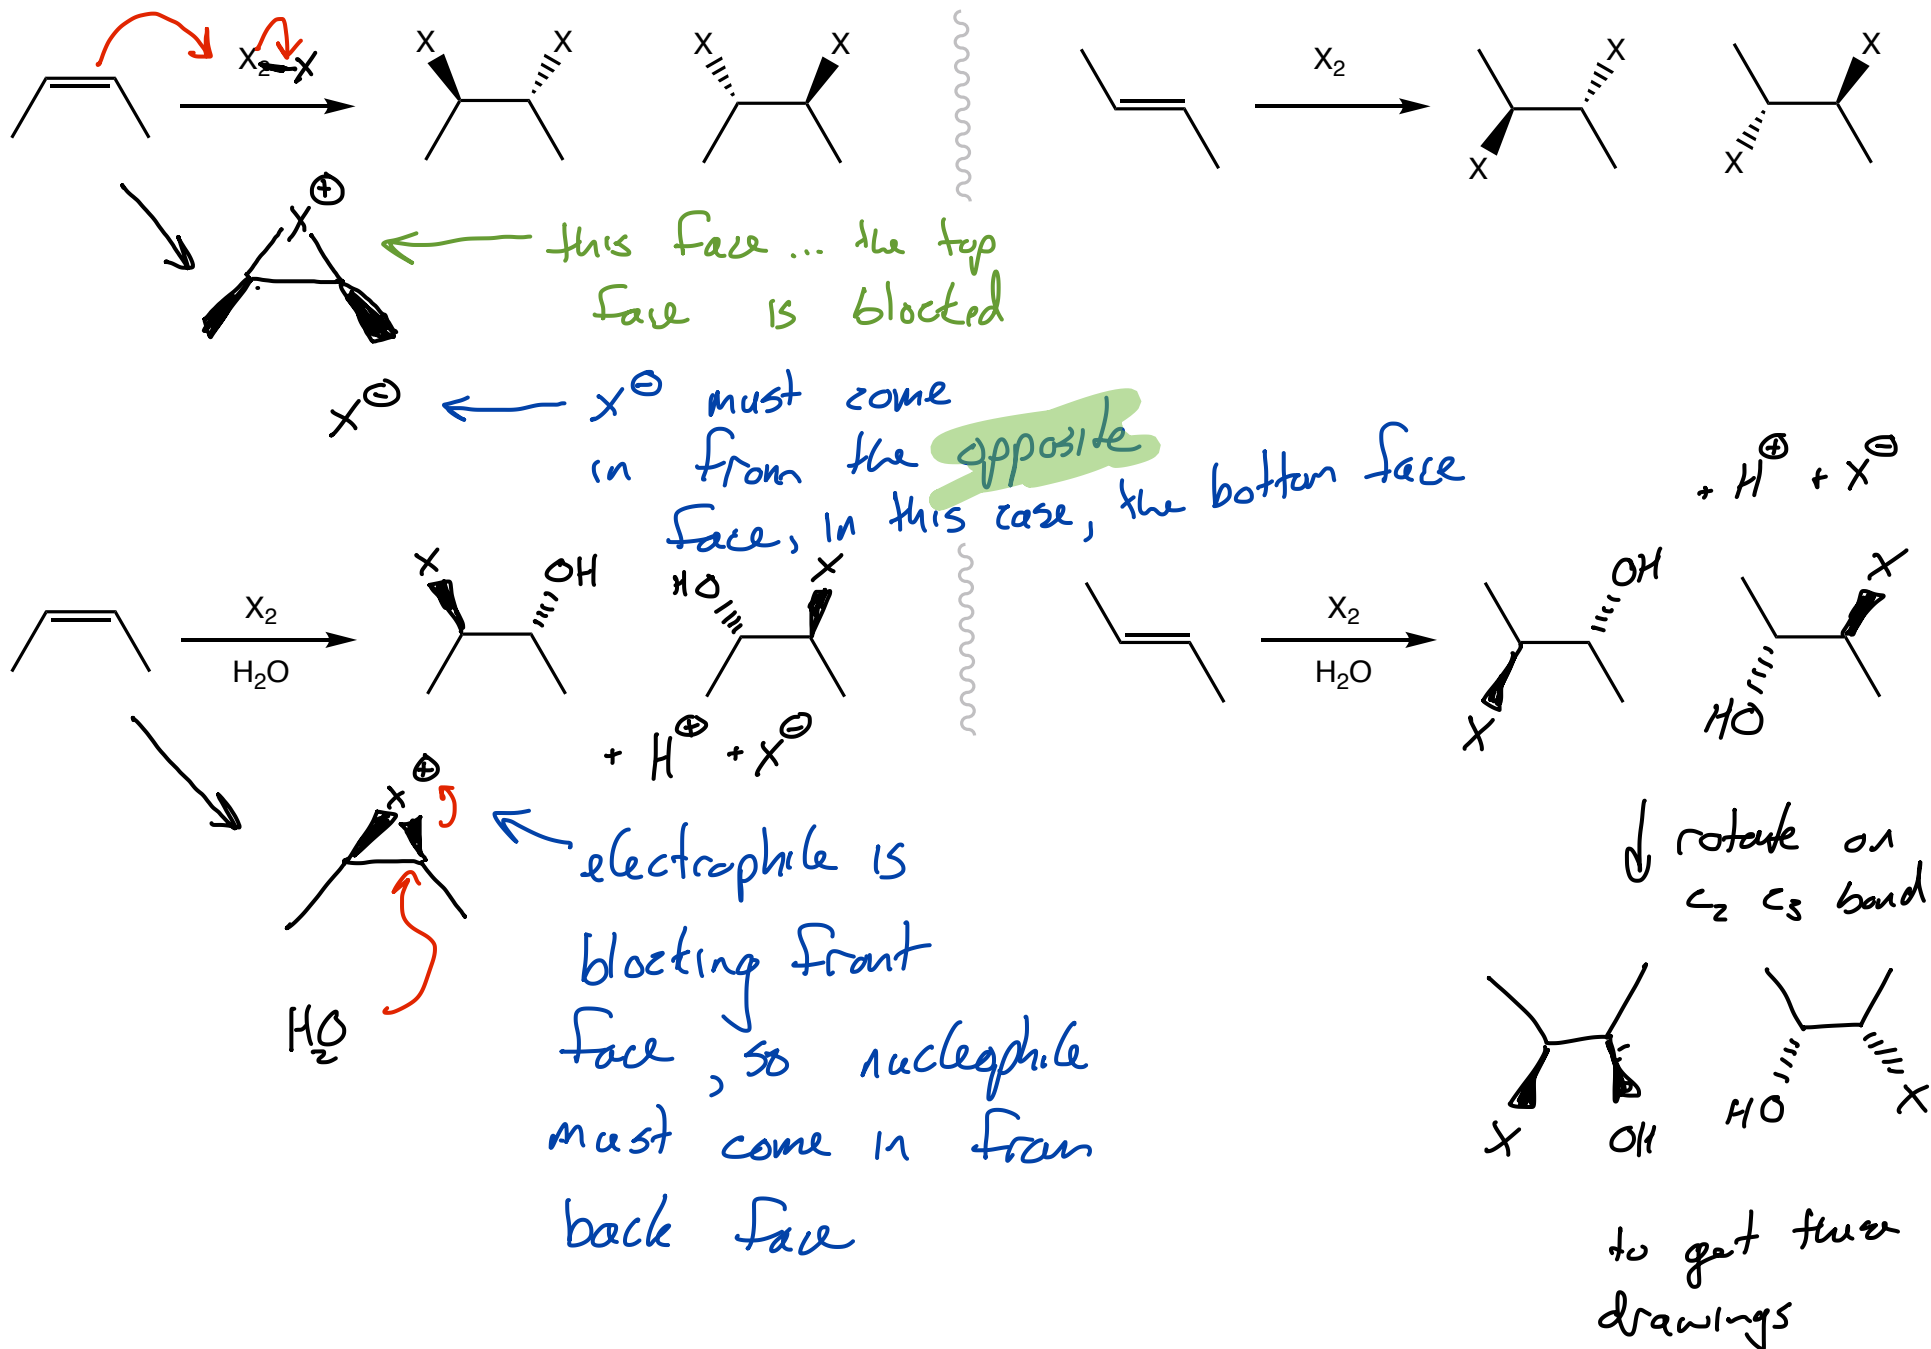 X₂—X
X X
X X
X₂
X
X
X
X
X ⊕
this face ... the top
face is blocked
X ⊖
X ⊖ must come
in from the opposite
face, in this case, the bottom face
+ H ⊕ + X ⊖
X OH
HO X
X₂
H₂O
+ H ⊕ + X ⊖
X₂
H₂O
OH
X
X
HO
X ⊕
H₂O
electrophile is
blocking front
face, so nucleophile
must come in from
back face
rotate on
C₂ C₃ bond
X OH
HO X
to get these
drawings